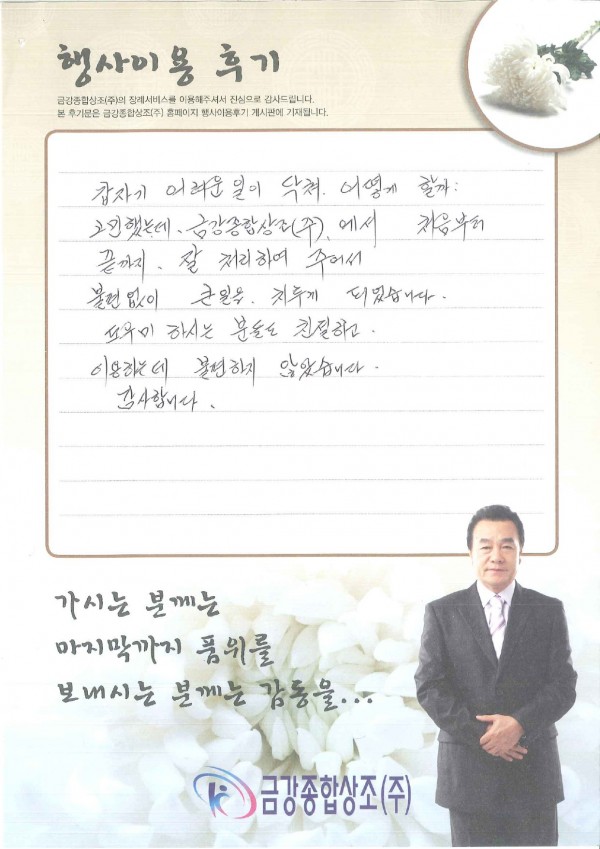 행사이용 후기
금강종합상조(주)의 장례서비스를 이용해주셔서 진심으로 감사드립니다.
본 후기문은 금강종합상조(주) 홈페이지 행사이용후기 게시판에 기재됩니다.
갑자기 어려운일이 닥쳐. 어떻게 할까.
고민했는데, 금강종합상조(주). 에서 처음부터
끝까지. 잘 처리하여 주어서
불편없이 큰일을. 치루게 되었습니다.
도우미 하시는 분들도 친절하고.
이용하는데 불편하지 않았습니다.
감사합니다.
가시는 분께는
마지막까지 품위를
보내시는 분께는 감동을...
금강종합상조(주)